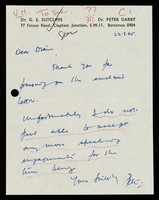 Dr. G. E. SUTCLIFFE Dr. PETER DARBY
77 Falcon Road, Clapham Junction, S.W.11. Battersea 0904
Dear
Thank you for
passing on the enclosed
letter.
Unfortunately I do not
feel able to accept
any more speaking
engagements for the
time being
Yours Sincerely